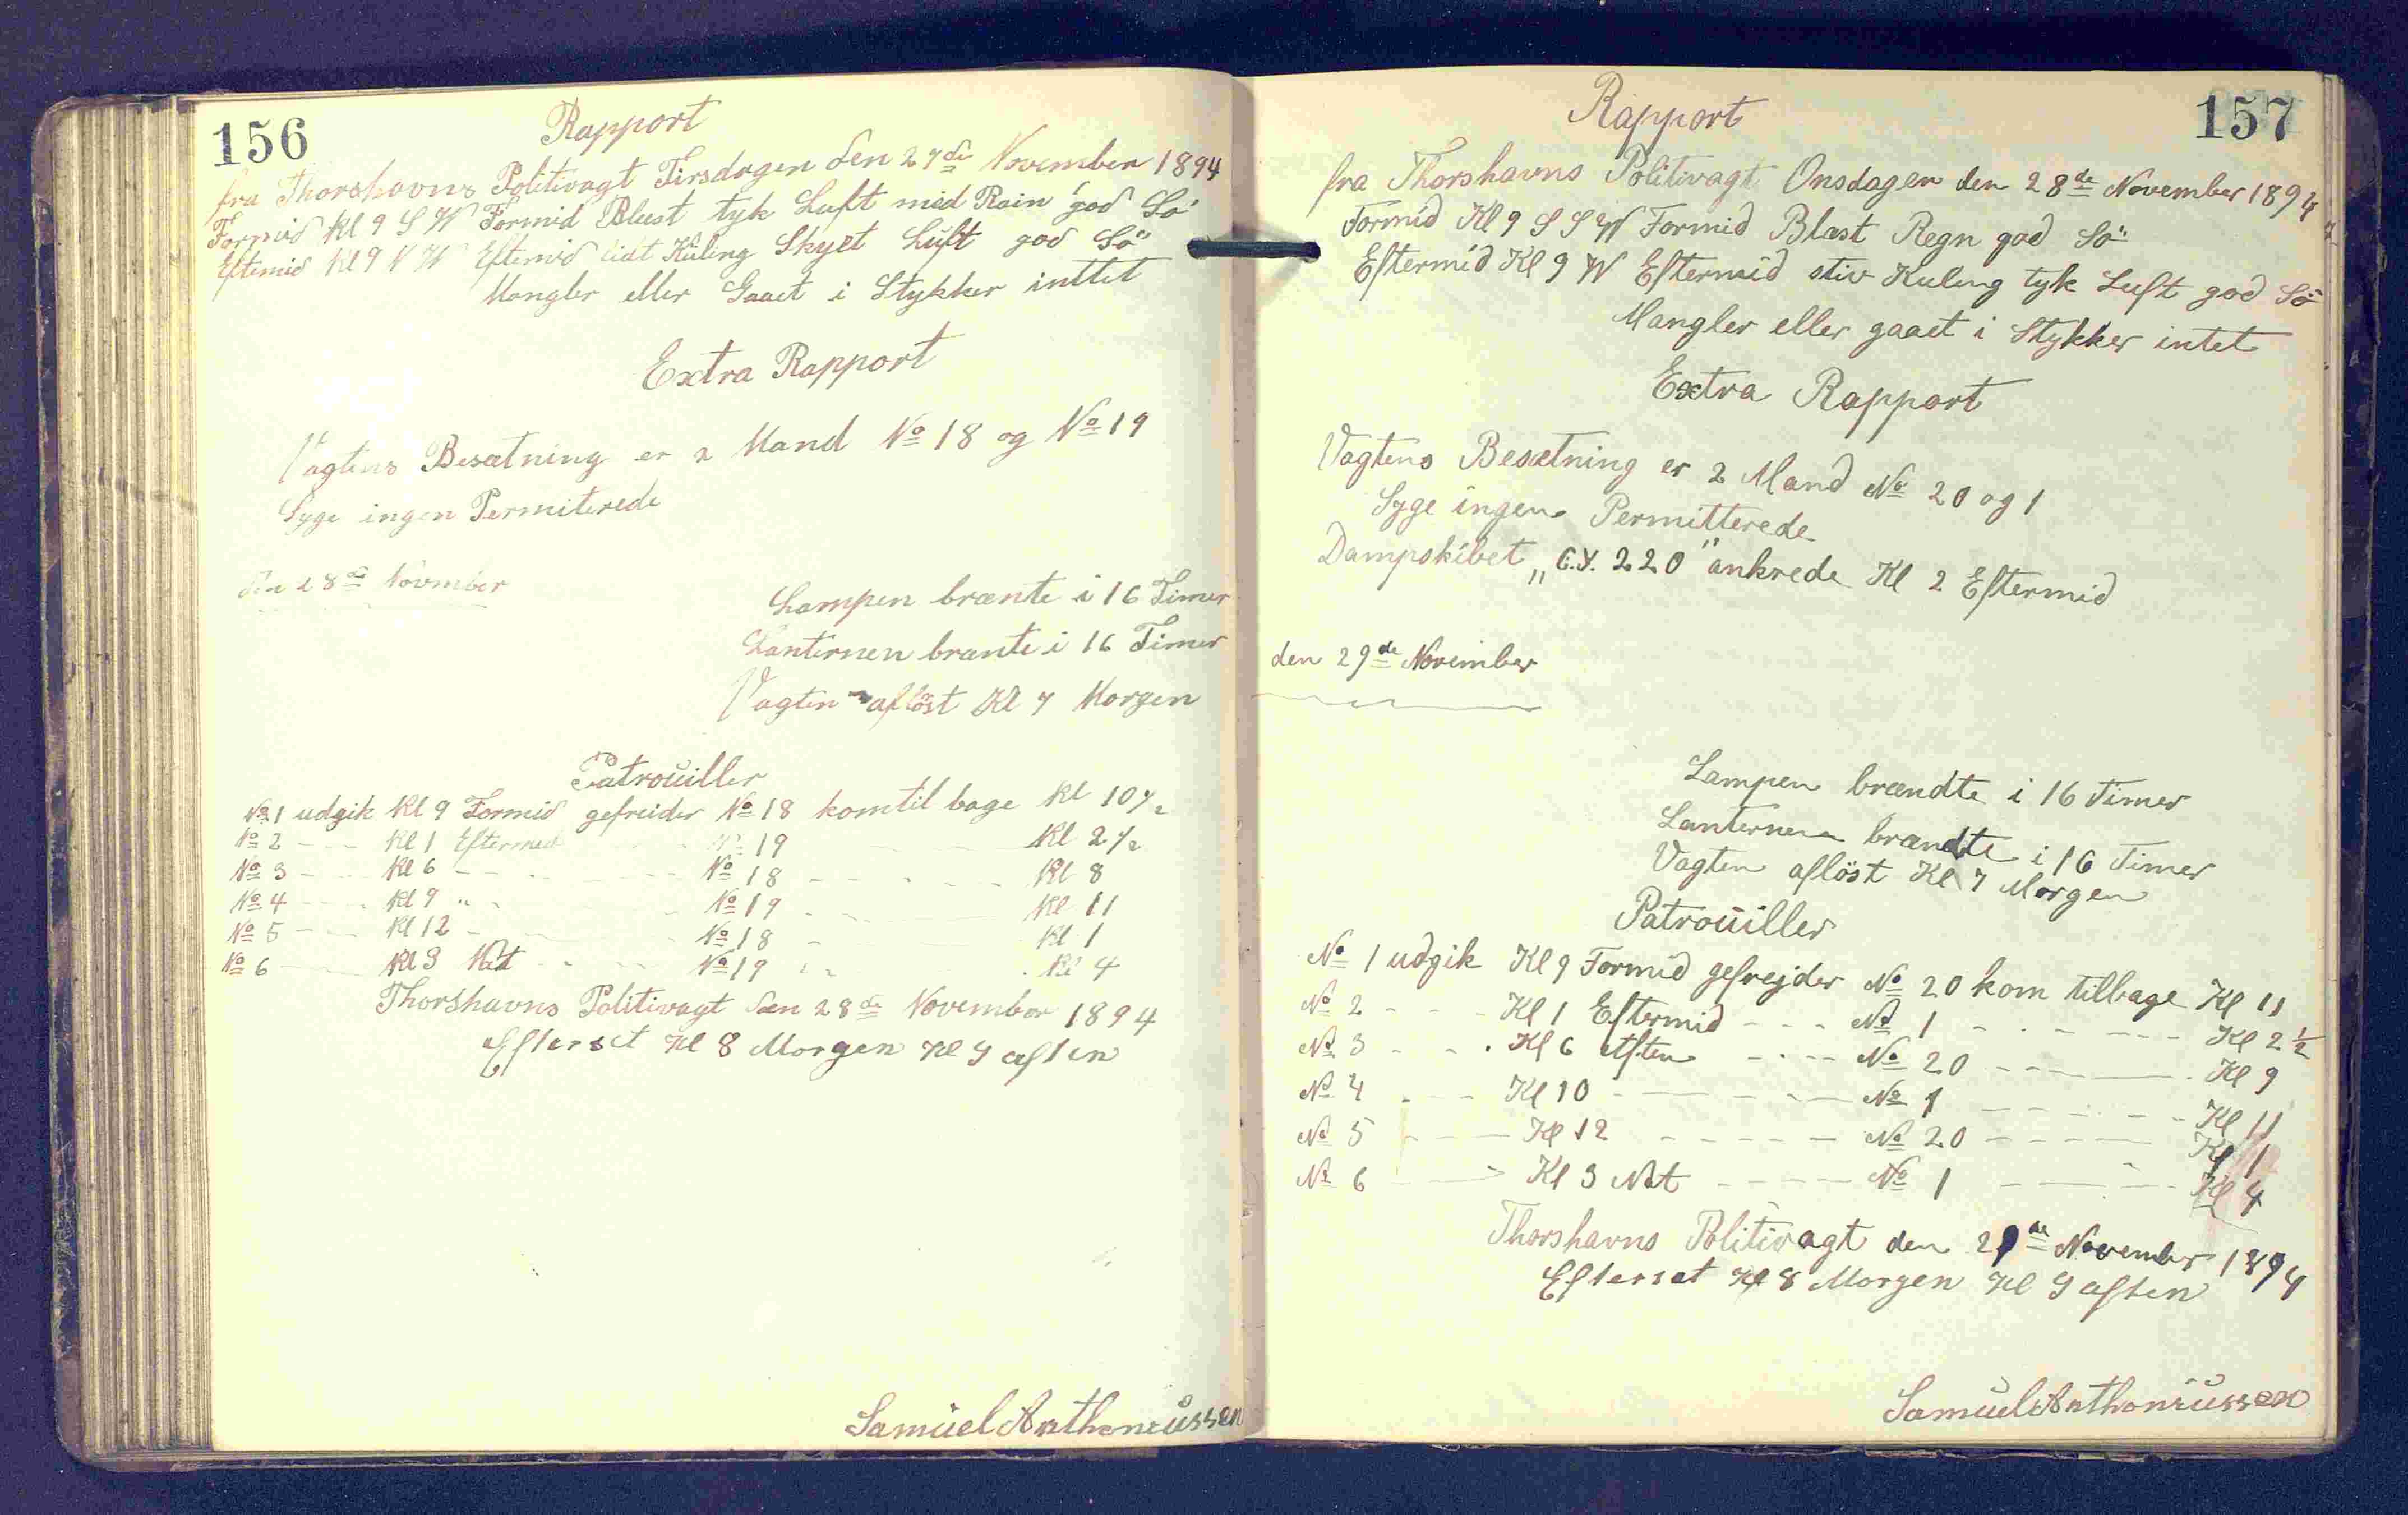 156
Rapport
fra Thorshavns Politivagt Tirsdagen den 27de November 1894
Formid Kl 9 S W Formid Blæst tyk Luft med Rain god Sö
Eftimid Kl 9 N W Eftimid lidt Küling Skyet Luft god Sö
Mangler eller Gaaet i Stykker inttet
Extra Rapport
Vagtens Besætning er 2 Mand No 18 og No 19
Syge ingen Permiterede
den 28de November
Lampen brænte i 16 Timer
Lanternen brænte i 16 Timer
Vagten aflöst Kl 7 Morgen
Patrouiller
No 1 udgik Kl 9 Formid gefreider No 18 kom til bage Kl 10 1/2
No 2 - - - Kl 1 Eftermid - - No 19 - - Kl 2 1/2
No 3 - - - Kl 6 - - - - No 18 - - - - Kl 8
No 4 - - - Kl 9 " - - No 19 - - - Kl 11
No 5 - - - Kl 12 - - No 18 - - Kl 1
No 6 - - - Kl 3 Nat - - No 19 - - - Kl 4
Thorshavns Politivagt den 28de November 1894
Efterset Kl 8 Morgen Kl 9 aften
Samüel Anthoniüssen
157
Rapport
fra Thorshavns Politivagt Onsdagen den 28de November 1894
Formid Kl 9 S S W Formid Blæst Regn god Sö
Eftermid Kl 9 W Eftermid stiv Kuling tyk Luft god Sö
Mangler eller gaaet i Stykker intet
Extra Rapport
Vagtens Besætning er 2 Mand No 20 og 1
Syge ingen Permitterede
Dampskibet „G.Y. 220" ankrede Kl 2 Eftermid
den 29de November
Lampen brændte i 16 Timer
Lanternen brændte i 16 Timer
Vagten aflöst Kl 7 Morgen
Patroüiller
No 1 udgik Kl 9 Formid gefrejder No 20 kom tilbage Kl 11
No 2 - - - Kl 1 Eftermid - - - No 1 - - - - - Kl 2 1/2
No 3 - - - Kl 6 Aften - - - No 20 - - - - Kl 9
No 4 - - - Kl 10 - - - - No 1 - - - - - Kl 11
No 5 - - - Kl 12 - - - - - No 20 - - - - Kl 1
No 6 - - - Kl 3 Nat - - - - No 1 - - - - Kl 4
Thorshavns Politivagt den 29de November 1894
Efterset Kl 8 Morgen Kl 9 aften
Samüel Anthoniüssen